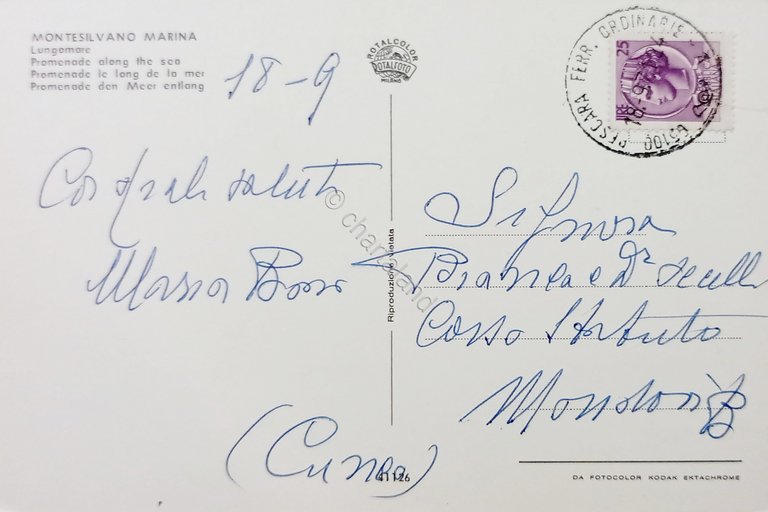 MONTESILVANO MARINA
Lungomare
Promenade along the sea
Promenade le long de la mer
Promenade den Meer entlang
18-9
ROTALCOLOR
ROTALFOTO
MILANO
PESCARA FERR. ORDINARIE
65100
25
LIRE
Cordiali saluti
Maria
© chartaland
Riproduzione vietata
Signora
Bianca e Dr
Corso Statuto
Mondovì B
(Cuneo)
41126
DA FOTOCOLOR KODAK EKTACHROME